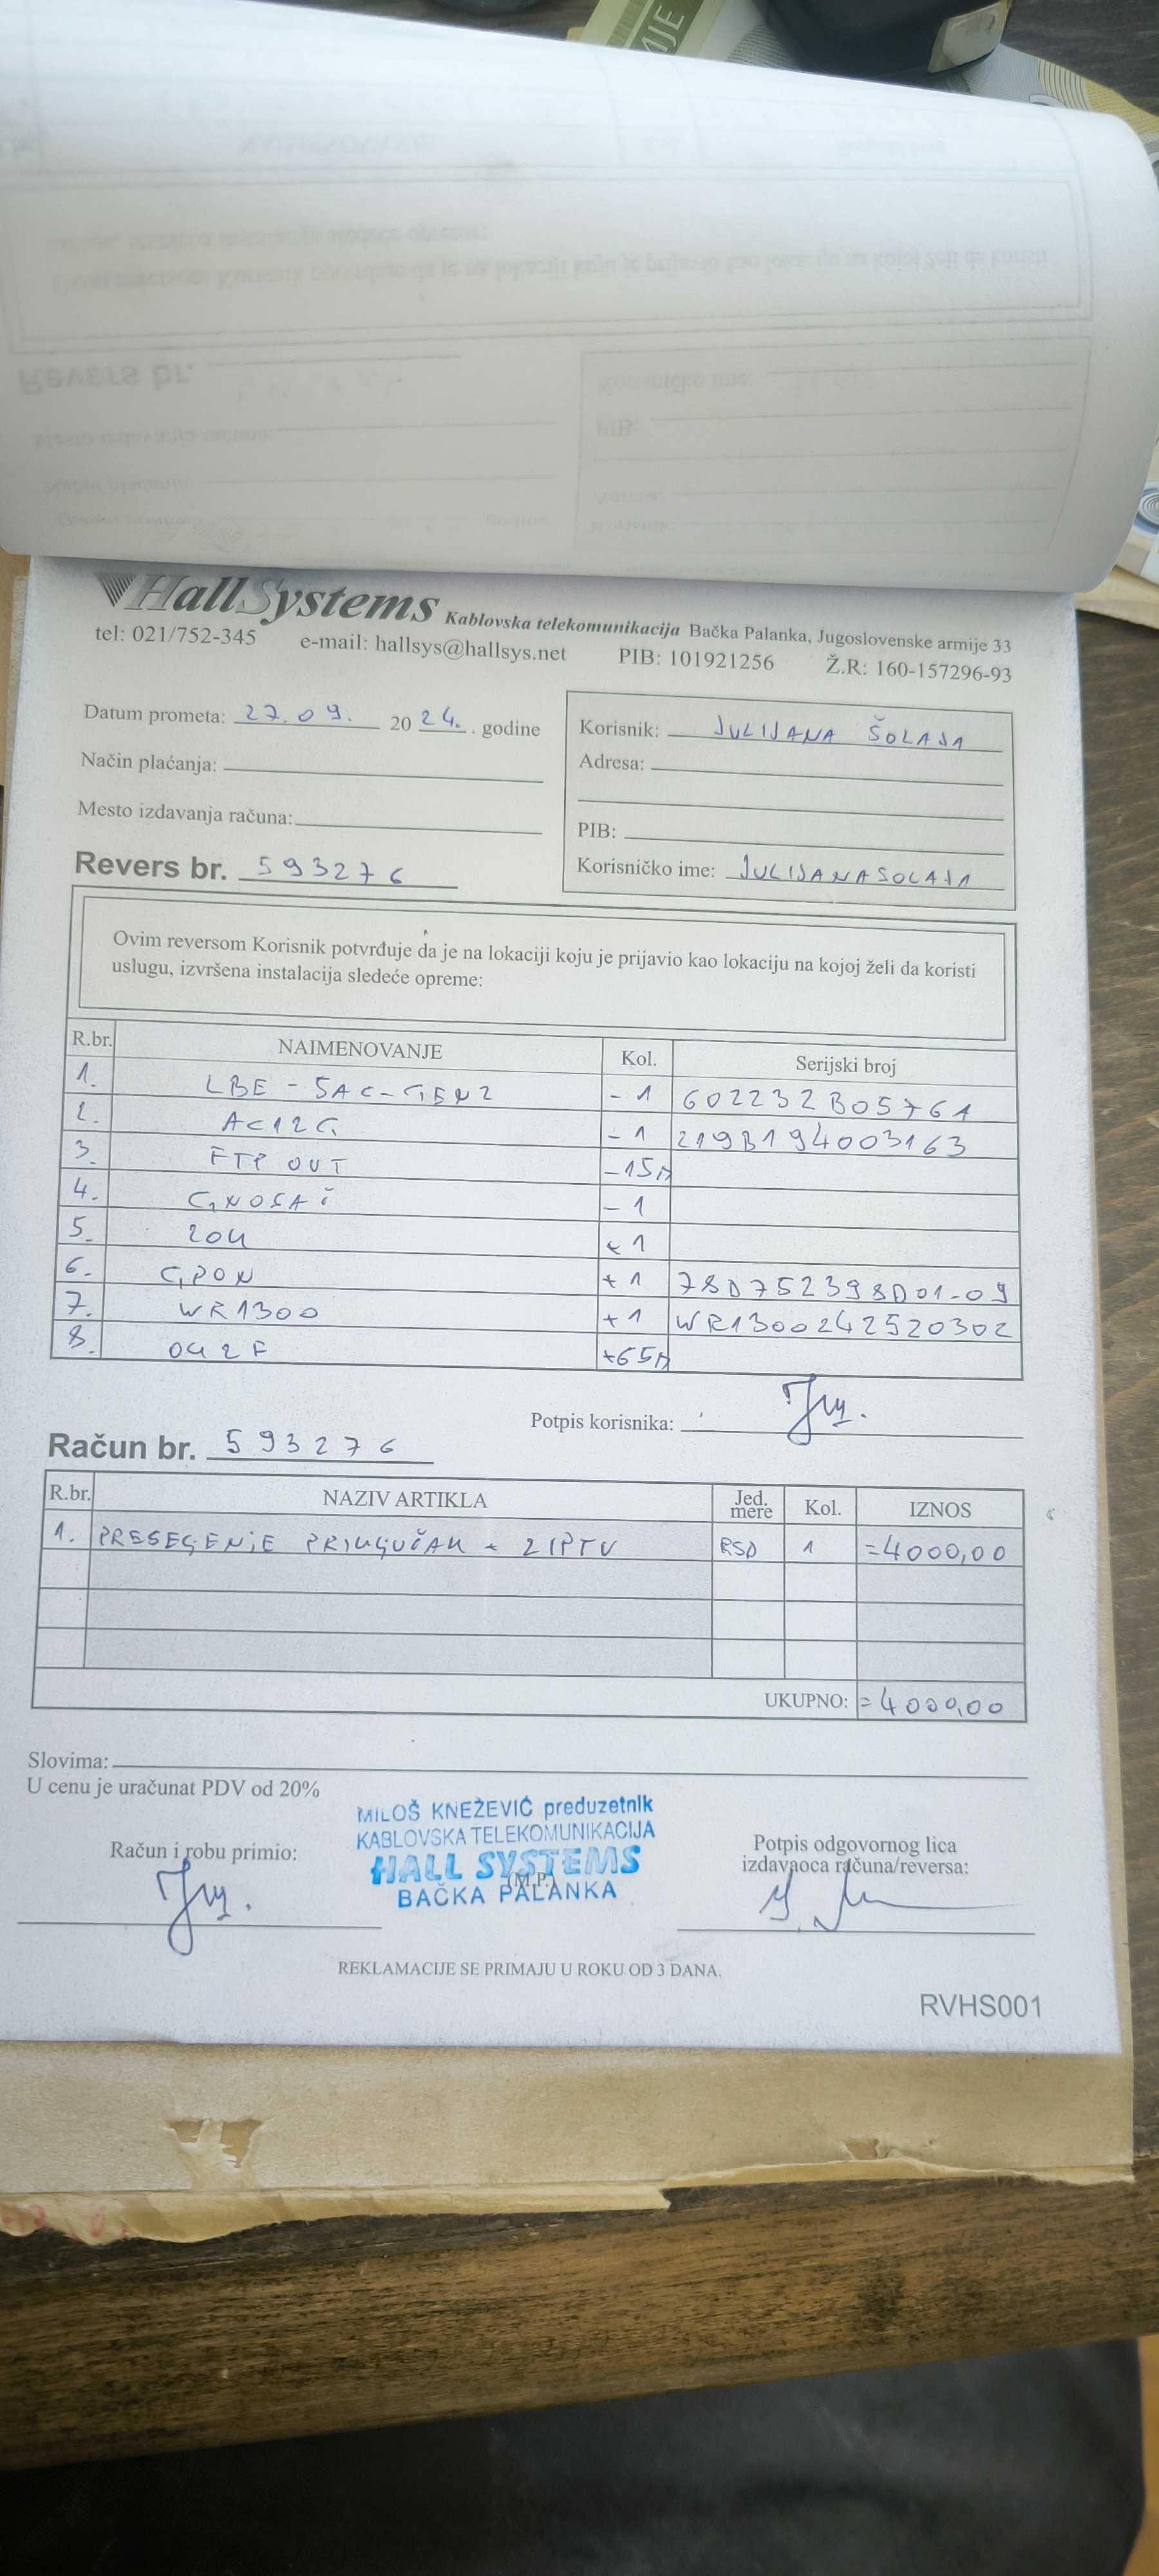 HallSystems Kablovska telekomunikacija Bačka Palanka, Jugoslovenske armije 33
tel: 021/752-345 e-mail: hallsys@hallsys.net PIB: 101921256 Ž.R: 160-157296-93
Datum prometa: 27.09. 2024. godine
Način plaćanja:
Mesto izdavanja računa:
Revers br. 593276
Korisnik: JULIJANA ŠOLAJA
Adresa:
PIB:
Korisničko ime: JULIJANASOLAJA
Ovim reversom Korisnik potvrđuje da je na lokaciji koju je prijavio kao lokaciju na kojoj želi da koristi
uslugu, izvršena instalacija sledeće opreme:
R.br. NAIMENOVANJE Kol. Serijski broj
1. LBE-5AC-GEN2 -1 602232B05761
2. AC12G -1 219B194003163
3. FTP OUT -15m
4. GNOSAČ -1
5. ZOK +1
6. GPON +1 78D752398D01-09
7. WR1300 +1 WR1300242520302
8. OK2F +65m
Potpis korisnika:
Račun br. 593276
R.br. NAZIV ARTIKLA Jed. mere Kol. IZNOS
1. PRESEGENJE PRIKGUČAK + 2 IPTV RSD 1 =4000,00
UKUPNO: =4000,00
Slovima:
U cenu je uračunat PDV od 20%
MILOŠ KNEŽEVIĆ preduzetnik
KABLOVSKA TELEKOMUNIKACIJA
HALL SYSTEMS
(M.P.)
BAČKA PALANKA
Račun i robu primio:
Potpis odgovornog lica
izdavaoca računa/reversa:
REKLAMACIJE SE PRIMAJU U ROKU OD 3 DANA.
RVHS001